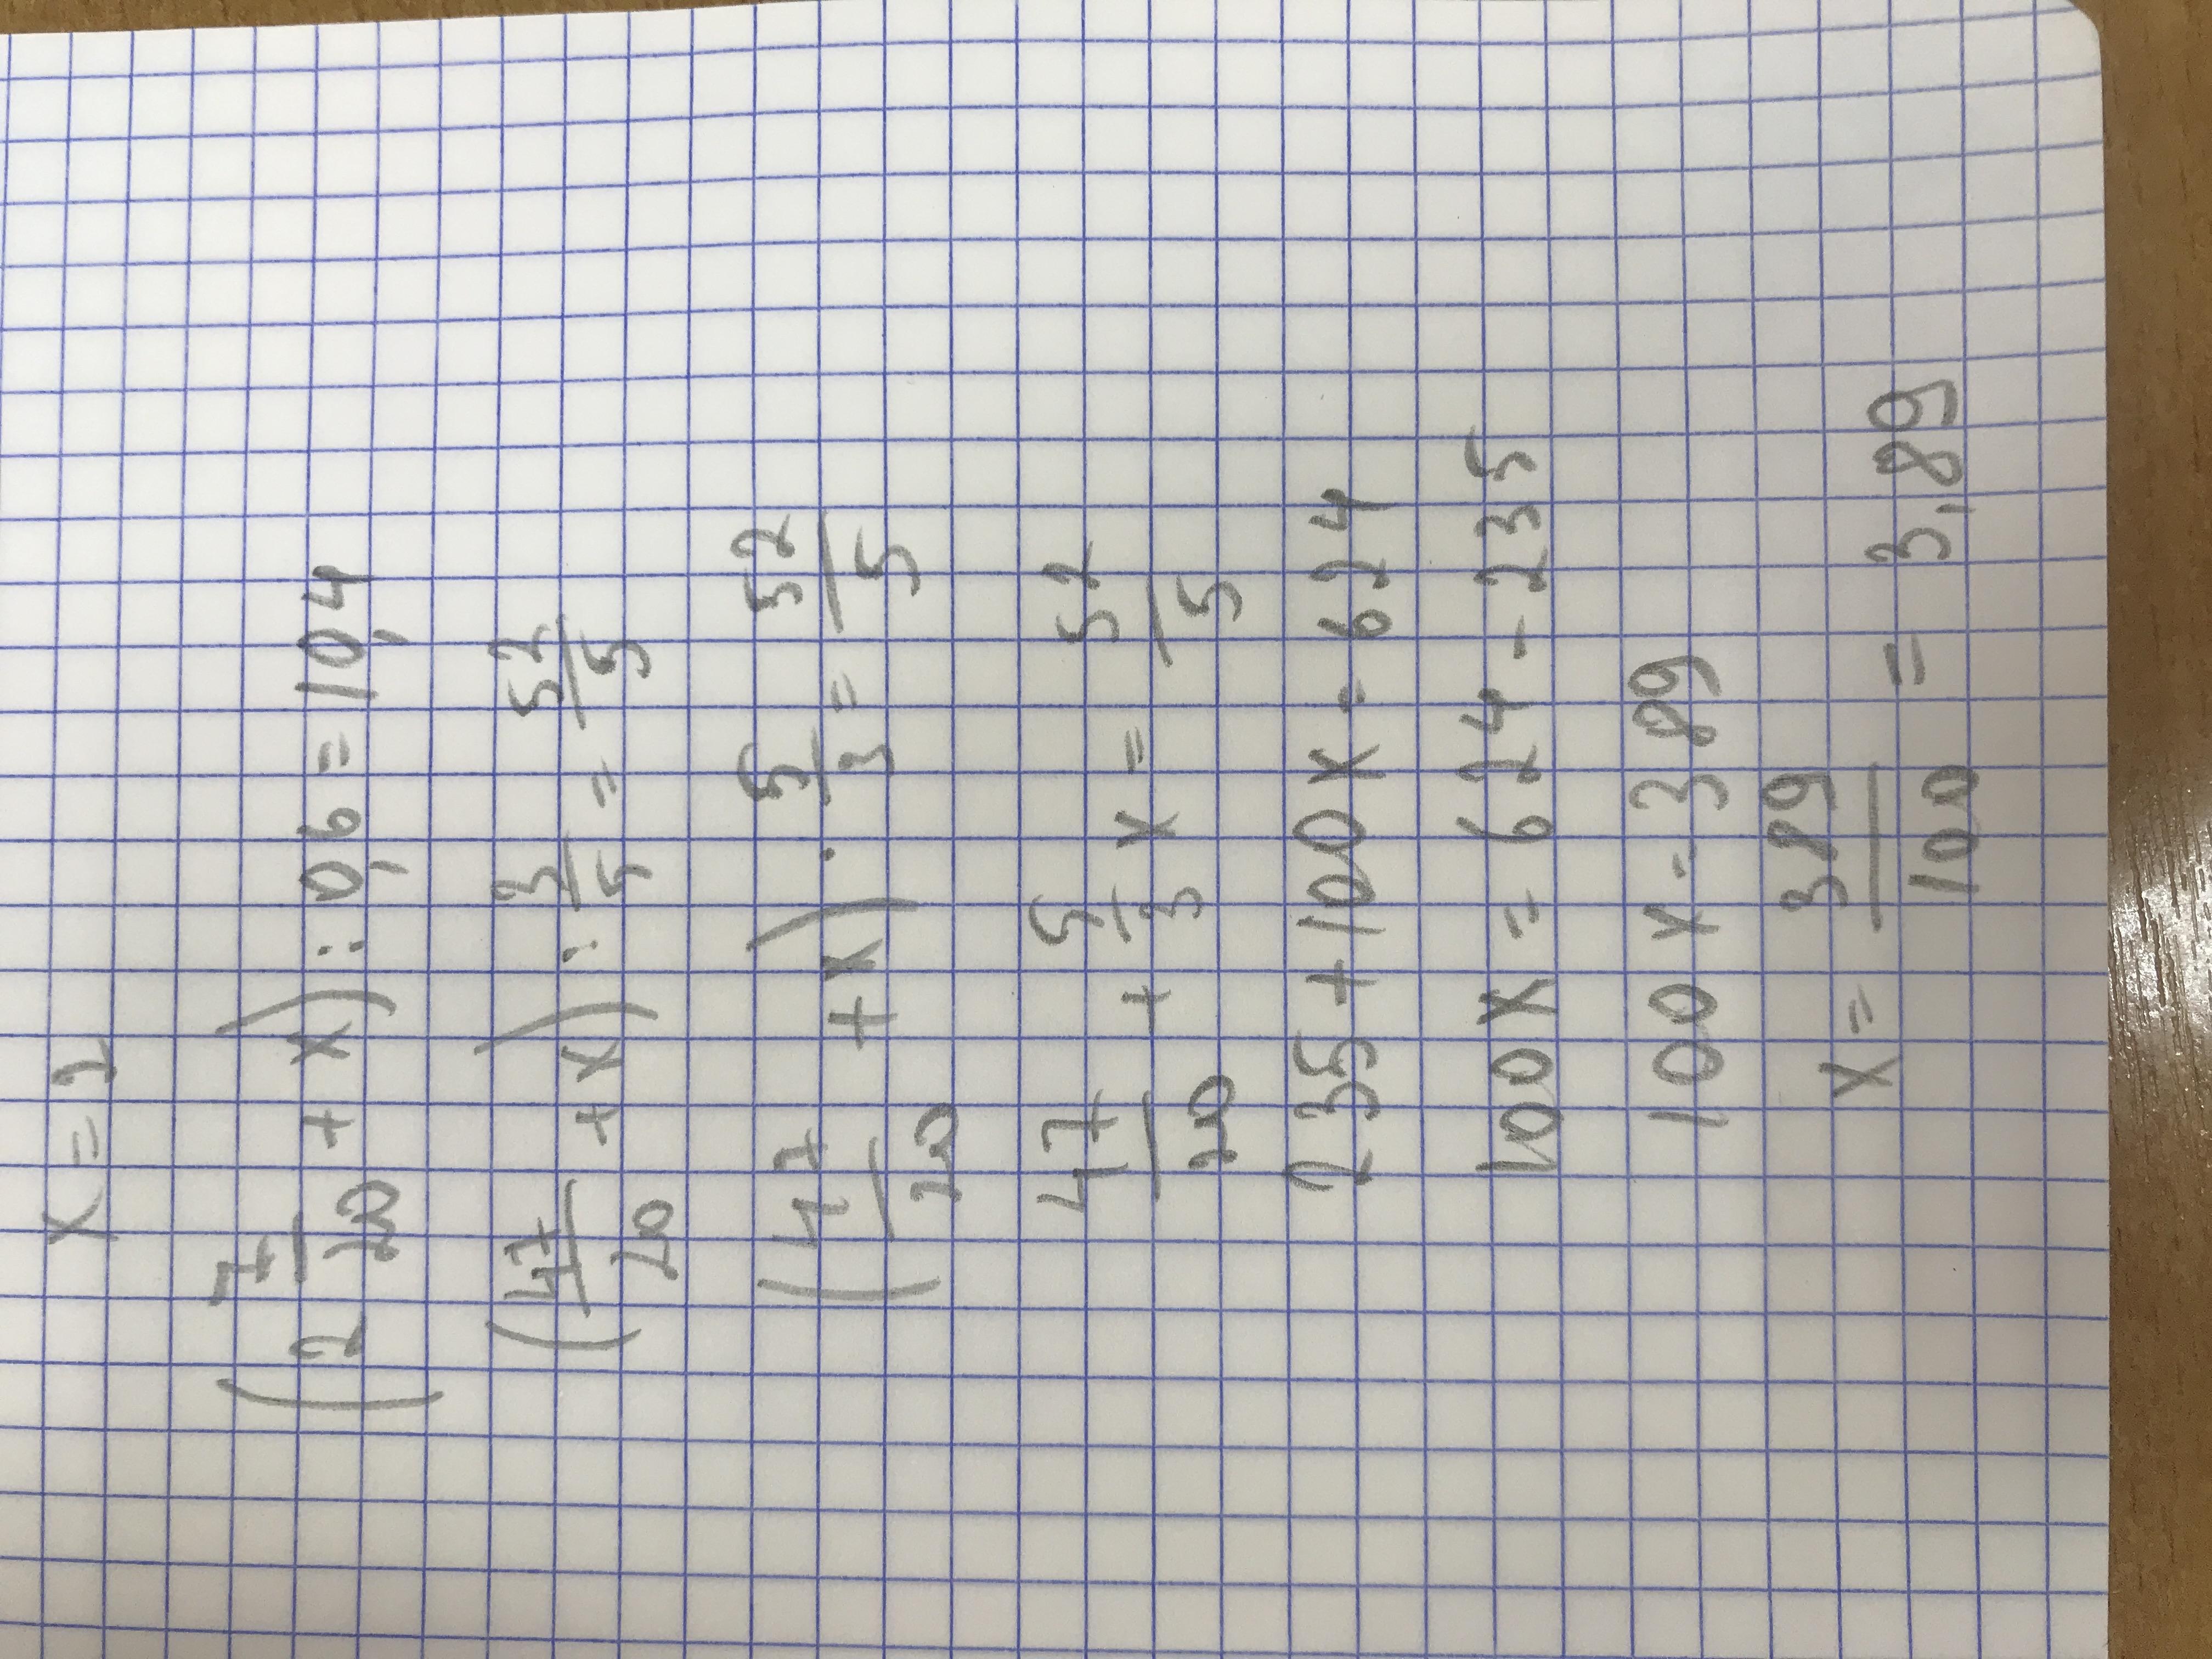 x = 2
(2 7/20 + x) : 0,6 = 10,4
(47/20 + x) : 3/5 = 52/5
(47/20 + x) · 5/3 = 52/5
47/20 + 5/3 x = 52/5
235 + 100x = 624
100x = 624 - 235
100x = 389
x = 389/100 = 3,89